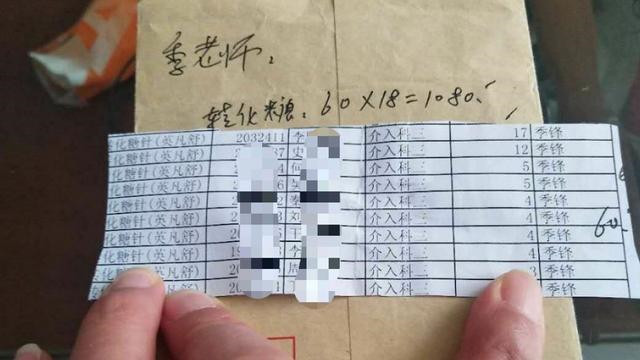 季老师:
转化糖: 60×18=1080.
化糖针(英凡舒) 2032411 李 介入科三 17 季锋
化糖针(英凡舒) 史 介入科三 12 季锋
化糖针(英凡舒) 何 介入科三 5 季锋
化糖针(英凡舒) 介入科三 5 季锋
化糖针(英凡舒) 介入科三 4 季锋
化糖针(英凡舒) 刘 介入科三 4 季锋
化糖针(英凡舒) 介入科三 4 季锋
化糖针(英凡舒) 李 介入科三 4 季锋
化糖针(英凡舒) 介入科三 3 季锋
60